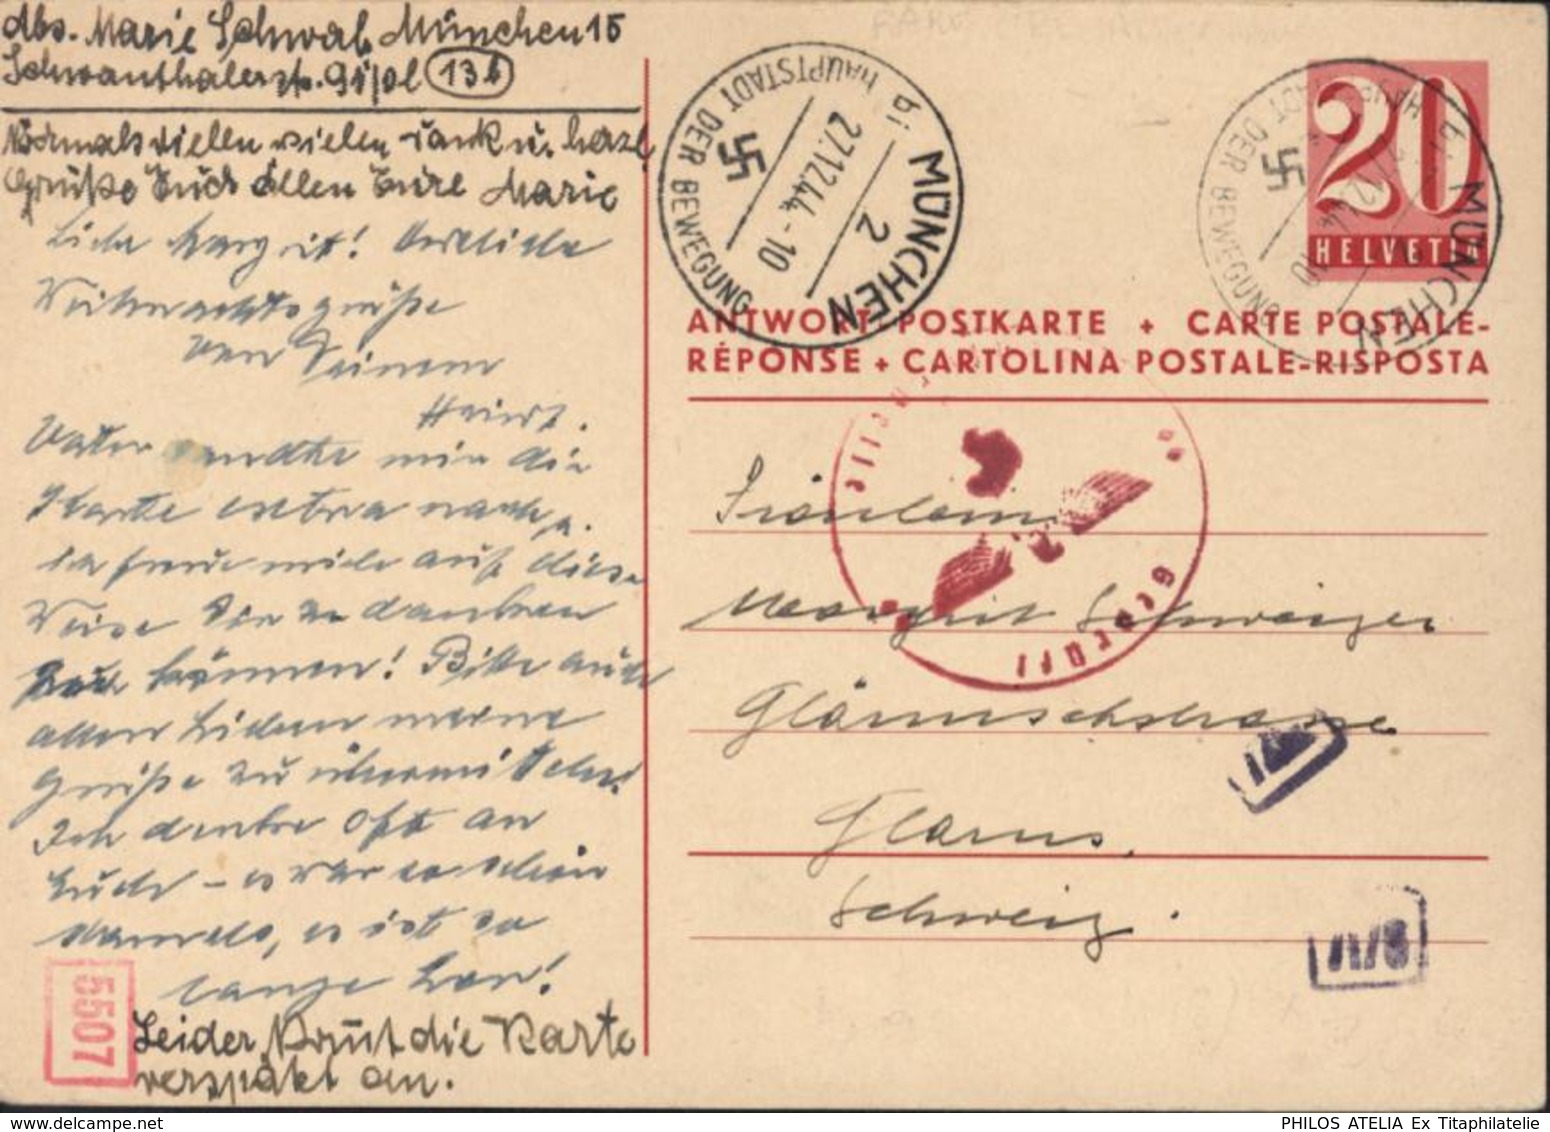 Abs. Marie Schwab, München 15
Schwanthalerstr. 91/0l 13b
Nochmals vielen vielen Dank u. herzl.
Grüße Euch Allen Eure Marie
Liebe Margrit! Herzliche
Weihnachtsgrüße
von Deinem
Heinz.
Vater sandte mir die
Karte extra nach
ich freue mich auf diese
Weise Dir zu danken
können! Bitte auch
allen Lieben meine
Grüße zu übermitteln!
Ich denke oft an
Euch – es war so schön
damals, es ist so
lange her!
Leider kommt die Karte
verspätet an.
5507
MÜNCHEN 2
bi
HAUPTSTADT DER BEWEGUNG
27.12.44.-10
MÜNCHEN
HAUPTSTADT DER BEWEGUNG
20
HELVETIA
ANTWORT-POSTKARTE + CARTE POSTALE-
RÉPONSE + CARTOLINA POSTALE-RISPOSTA
Geprüft
Fräulein
Margrit Schweizer
Glärnischstrasse
Glarus.
Schweiz.
PHILOS ATELIA Ex Titaphilatelie